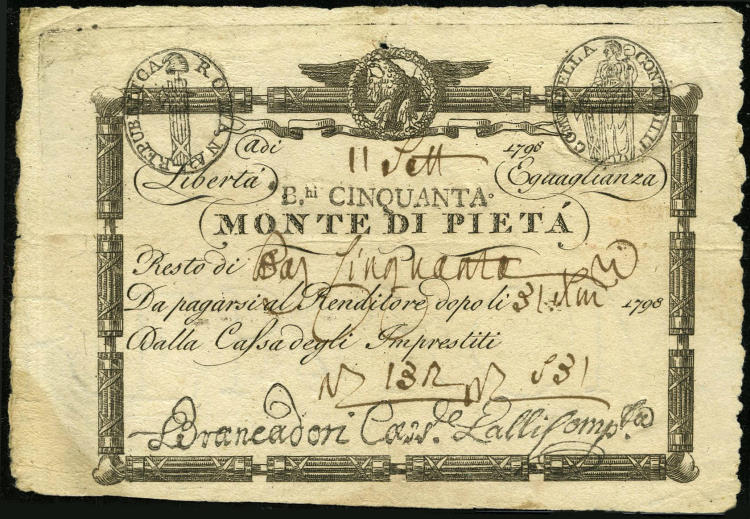 REPUBBLICA ROMANA
CON. DELLA CONTABILIT
Adi 11 Sett 1798
Libertà Eguaglianza
B.hi CINQUANTA.
MONTE DI PIETÁ
Resto di Baj Cinquanta
Da pagarsi al Renditore dopo li 31. 1798
Dalla Cassa degli Imprestiti
N 132 N 531
Brancadori Cass.e Lalli Comp.ta